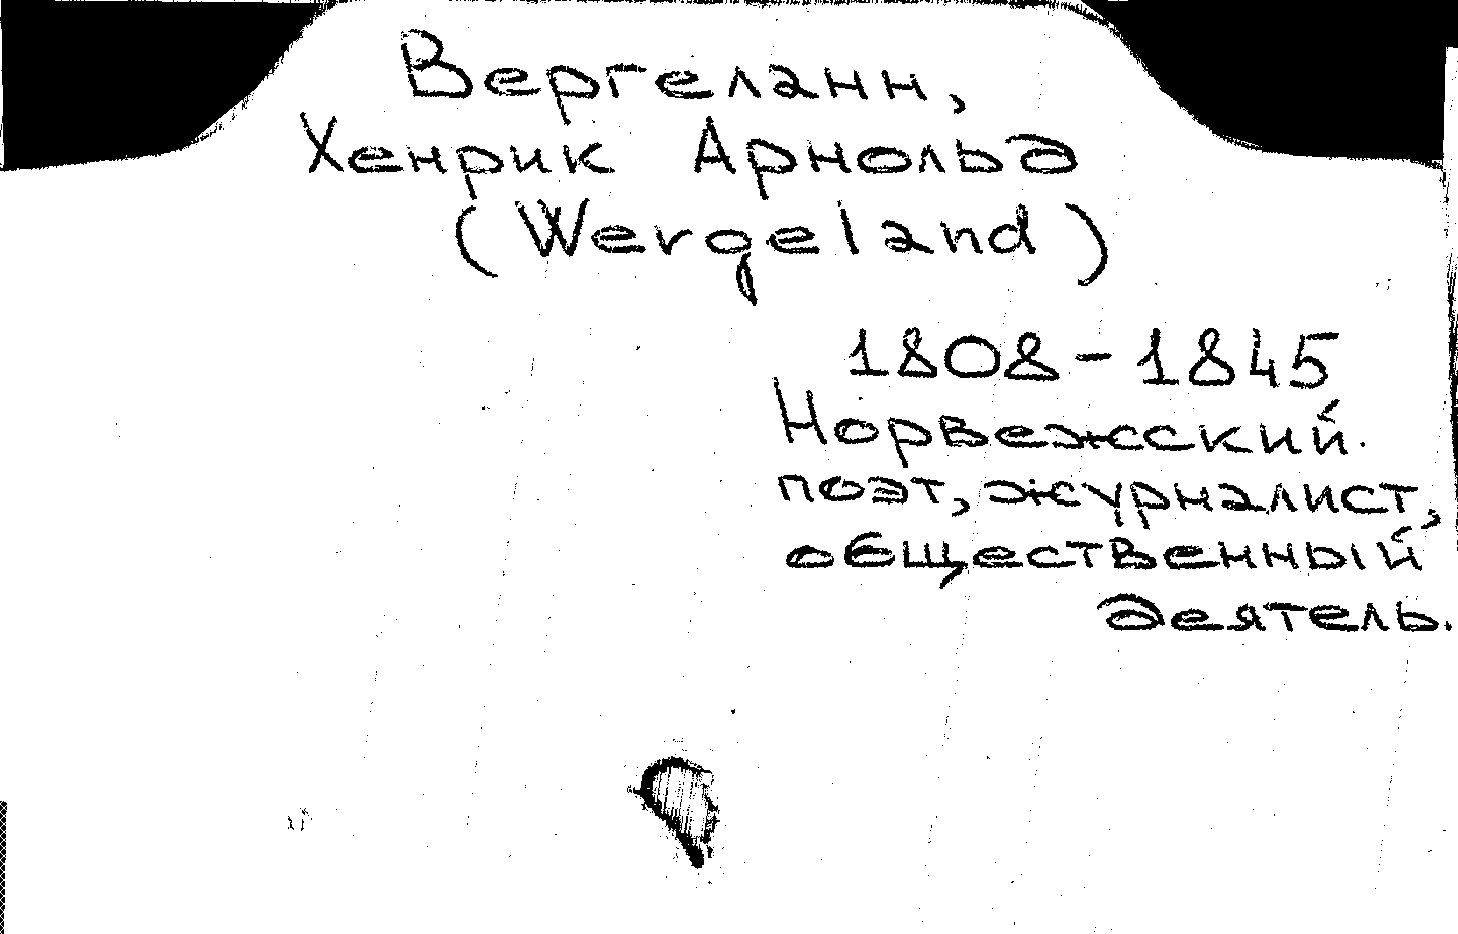 Вергеланн,
Хенрик Арнольд
(Wergeland)
1808-1845
Норвежсский.
поэт, журналист,
общественный
деятель.